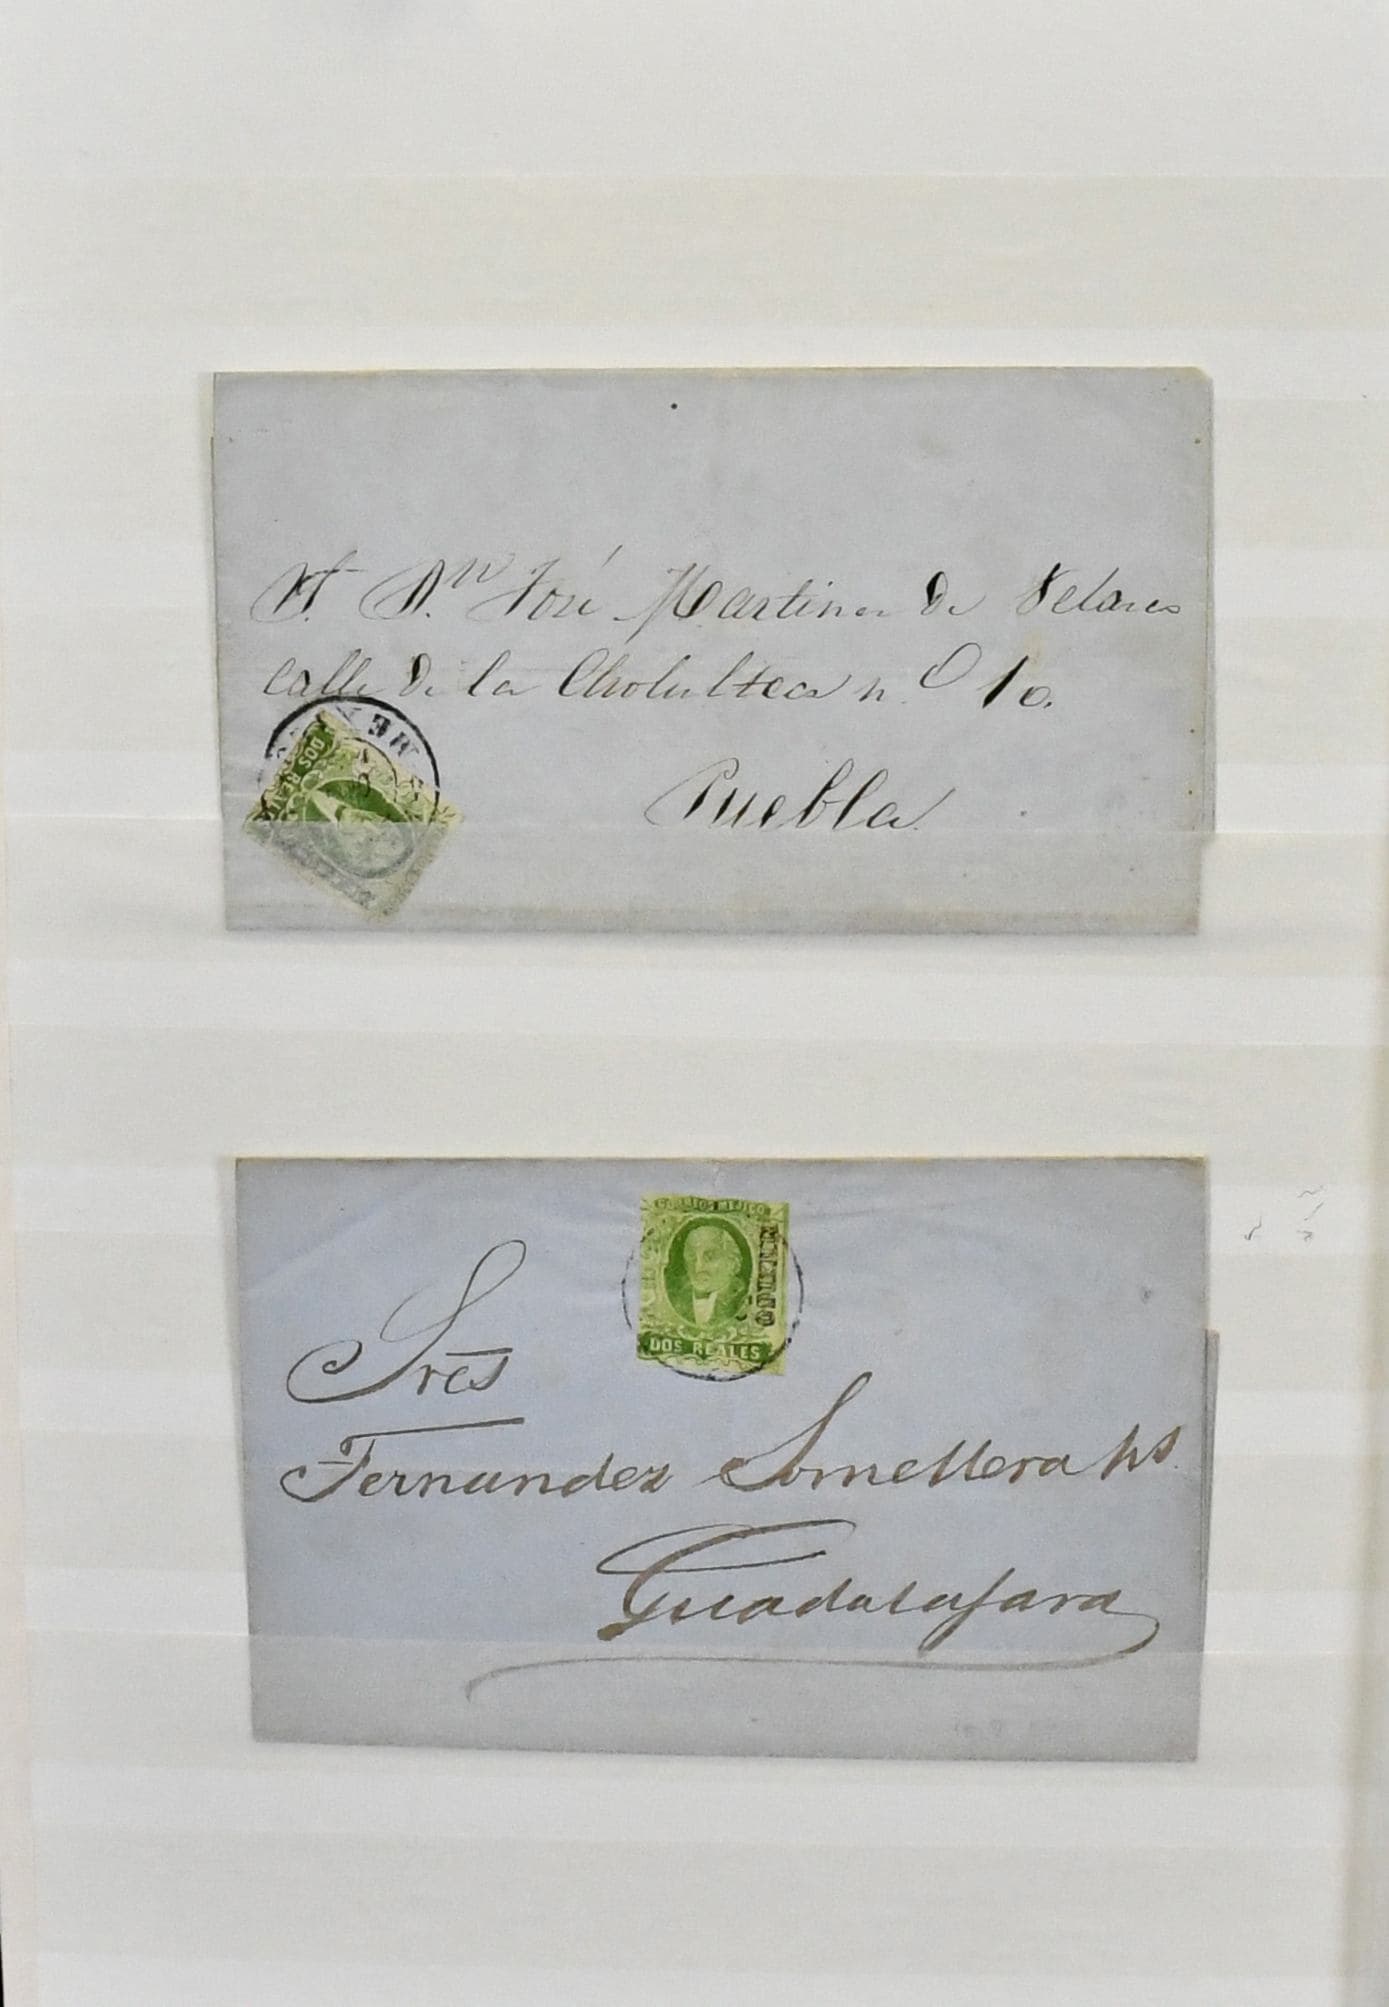 S. D.n José Martinez de Velasco
Calle de la Cholulteca n.o 10.
Puebla.
DOS REALES
CORREOS MEJICO
MEXICO
DOS REALES
Sres
Fernandez Somellera hs.
Guadalajara